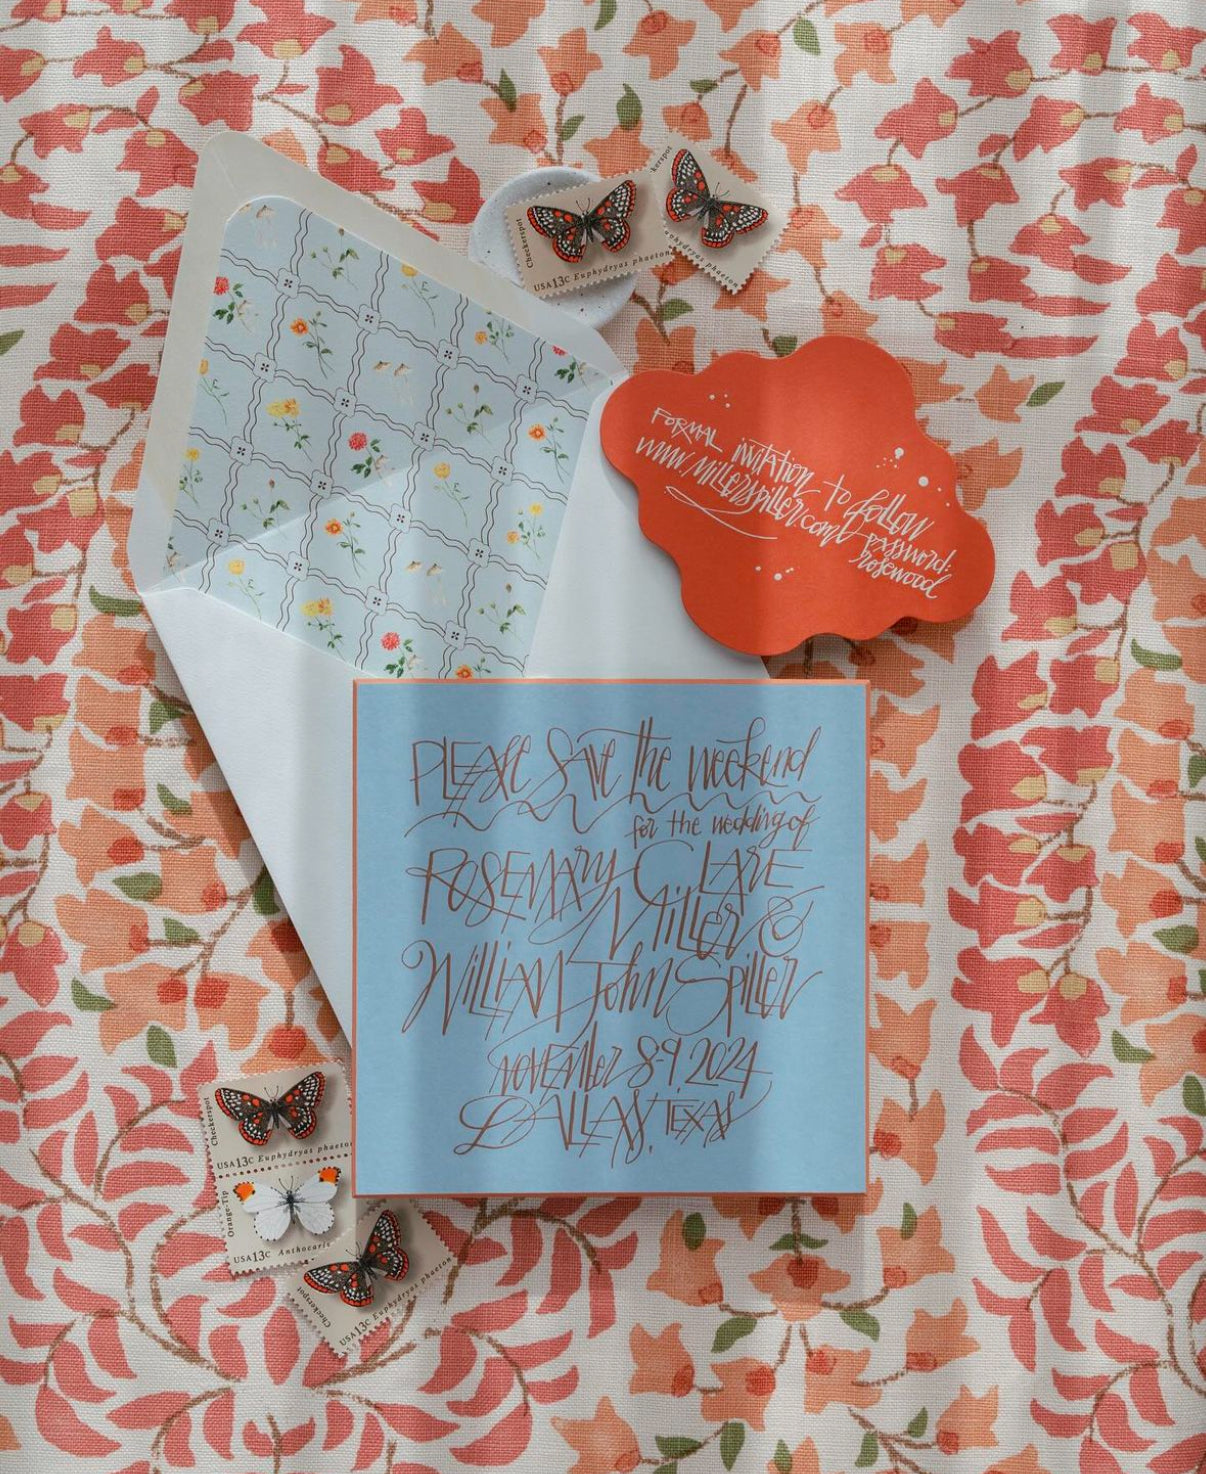 Checkerspot
USA 13c Euphydryas phaeton
kerspot
uphydryas phaeton
FORMAL invitation to follow
www.millerspiller.com
password:
rosewood
PLEASE SAVE the weekend
for the wedding of
ROSEMARY CLARE
Miller &
WILLIAM John Spiller
november 8-9, 2024
DALLAS, TEXAS
Checkerspot
USA 13c Euphydryas phaeton
Orange-Tip
USA 13c Anthocaris
Checkerspot
USA 13c Euphydryas phaeton